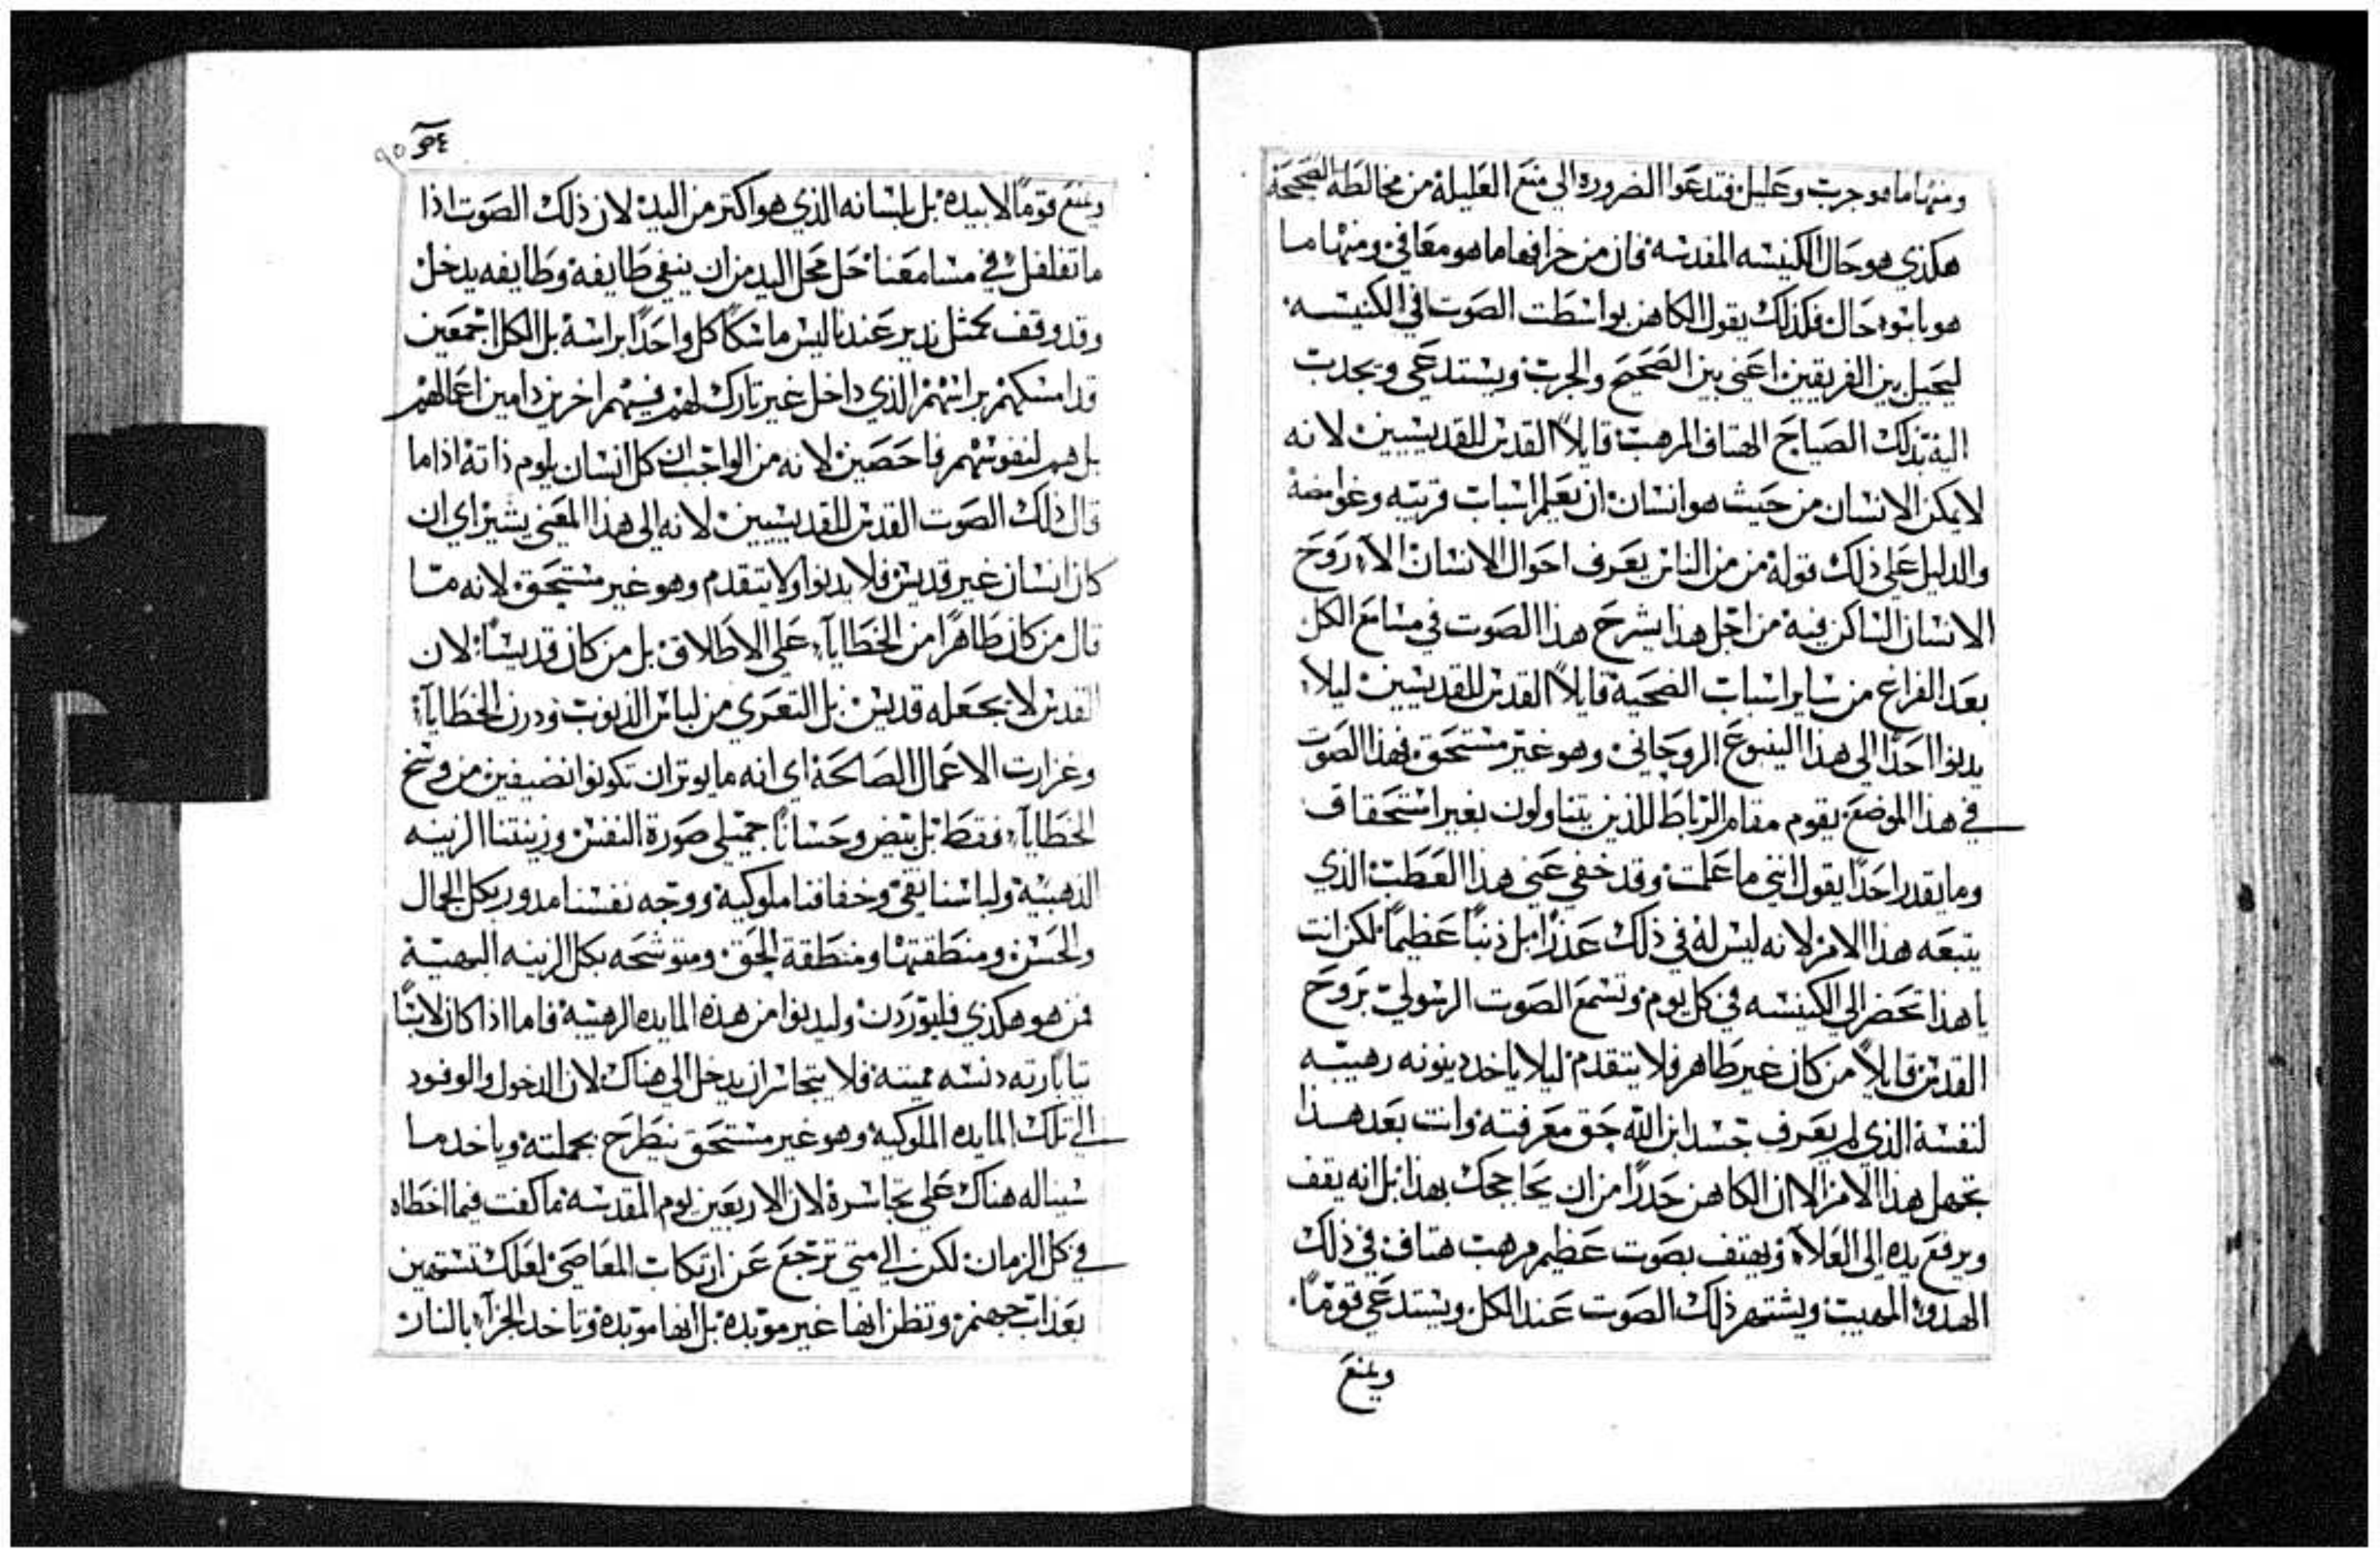 ومنها ما هو جرب وعليل فتدعوا الضروره الي منع العليلة من مخالطة الصحيحة
هكذي هو حال الكنيسه المقدسه فان من خرافها ما هو معافي ومنها ما
هو باسوء حال فكذلك يقول الكاهن بواسطت الصوت في الكنيسه
ليحيل بين الفريقين اعني بين الصحيح والجرب ويستدعي ويجدب
اليه بذلك الصياح الهتاف المرهب قايلاً القدس للقديسين لانه
لا يمكن الانسان من حيث هو انسان ان يعلم اسباب قريبه وغوامضه
والدليل علي ذلك قوله من من الناس يعرف احوال الانسان الاء روح
الانسان الساكن فيه من اجل هذا يشرح هذا الصوت في مسامع الكل
بعد الفراغ من ساير اسباب الضحية قايلاً القدس للقديسين ليلا
يدنوا احدًا الي هذا الينبوع الروحاني وهو غير مستحق فهذا الصوت
في هذا الموضع يقوم مقام الرباط للذين يتناولون بغير استحقاق
وما يقدر احدًا يقول انني ما علمت وقد خفي عني هذا العطب الذي
يتبعه هذا الامر لانه ليس له في ذلك عذرًا بل ذنبًا عظيمًا لكن انت
يا هذا تحضر الي الكنيسه في كل يوم وتسمع الصوت الرسولي بروح
القدس قايلاً من كان غير طاهر فلا يتقدم ليلا ياخد دينونه رهيبه
لنفسة الذي لم يعرف جسد ابن الله حق معرفته وانت بعد هذا
تجهل هذا الامر الا ان الكاهن حدرًا من ان يحاججك بهذا بل انه يقف
ويرفع يده الي العلاء ويهتف بصوت عظيم مرهب هتاف في ذلك
الهدوء المهيب ويشتهر ذلك الصوت عند الكل ويستدعي قومًا
ويمنع
ويمنع قومًا لا بيده بل بلسانه الذي هو اكتر من اليد لان ذلك الصوت اذا
ما تفلفل في مسامعنا حل محل اليد من ان ينفي طايفة وطايفه يدخل
وقد وقف كمثل نذير عندنا ليس ماسكًا كل واحدًا براسه بل الكل اجمعين
قد امسكهم براسهم الذي داخل غير تارك لهم فيهم اخرين دامين اعمالهم
بل هم لنفوسهم فاحصين لانه من الواجب ان كل انسان يلوم ذاته اذا ما
قال ذلك الصوت القدس للقديسيين لانه الي هذا المعني يشير اي ان
كان انسان غير قديس فلا يدنوا ولا يتقدم وهو غير مستحق لانه ما
قال من كان طاهرًا من الخطايآء علي الاطلاق بل من كان قديسًا لان
القدس لا يجعله قديس بل التعري من لباس الذنوب ودرن الخطايآء
وغزارت الاعمال الصالحة اي انه ما يوتر ان تكونوا نضيفين من وسخ
الخطايآء فقط بل بيض وحسانًا جميلي صورة النفس وزينتنا الزينه
الذهبية ولباسنا نقي وخفافنا ملوكية ووجه نفسنا مدور بكل الجمال
والحسن ومنطقتها ومنطقة الحق ومتوشحه بكل الزينه البهية
فمن هو هكذي فليوردن وليدنوا من هذه المايده الرهيبه فاما اذا كان لابسًا
تيابًا رته دنسه مميته فلا يتجاسر ان يدخل الي هناك لان الدخول والوفود
الي تلك المايده الملوكية وهو غير مستحق ينطرح بجملته وياخد ما
سيناله هناك علي تجاسرة لان الاربعين يوم المقدسه ما كفت فيما اخطاه
في كل الزمان لكن الي متي ترجع عن ارتكاب المعاصي لعلك تستهين
بعذاب جهنم وتظن انها غير موبده بل انها موبده وتاخد الجزآء بالنار